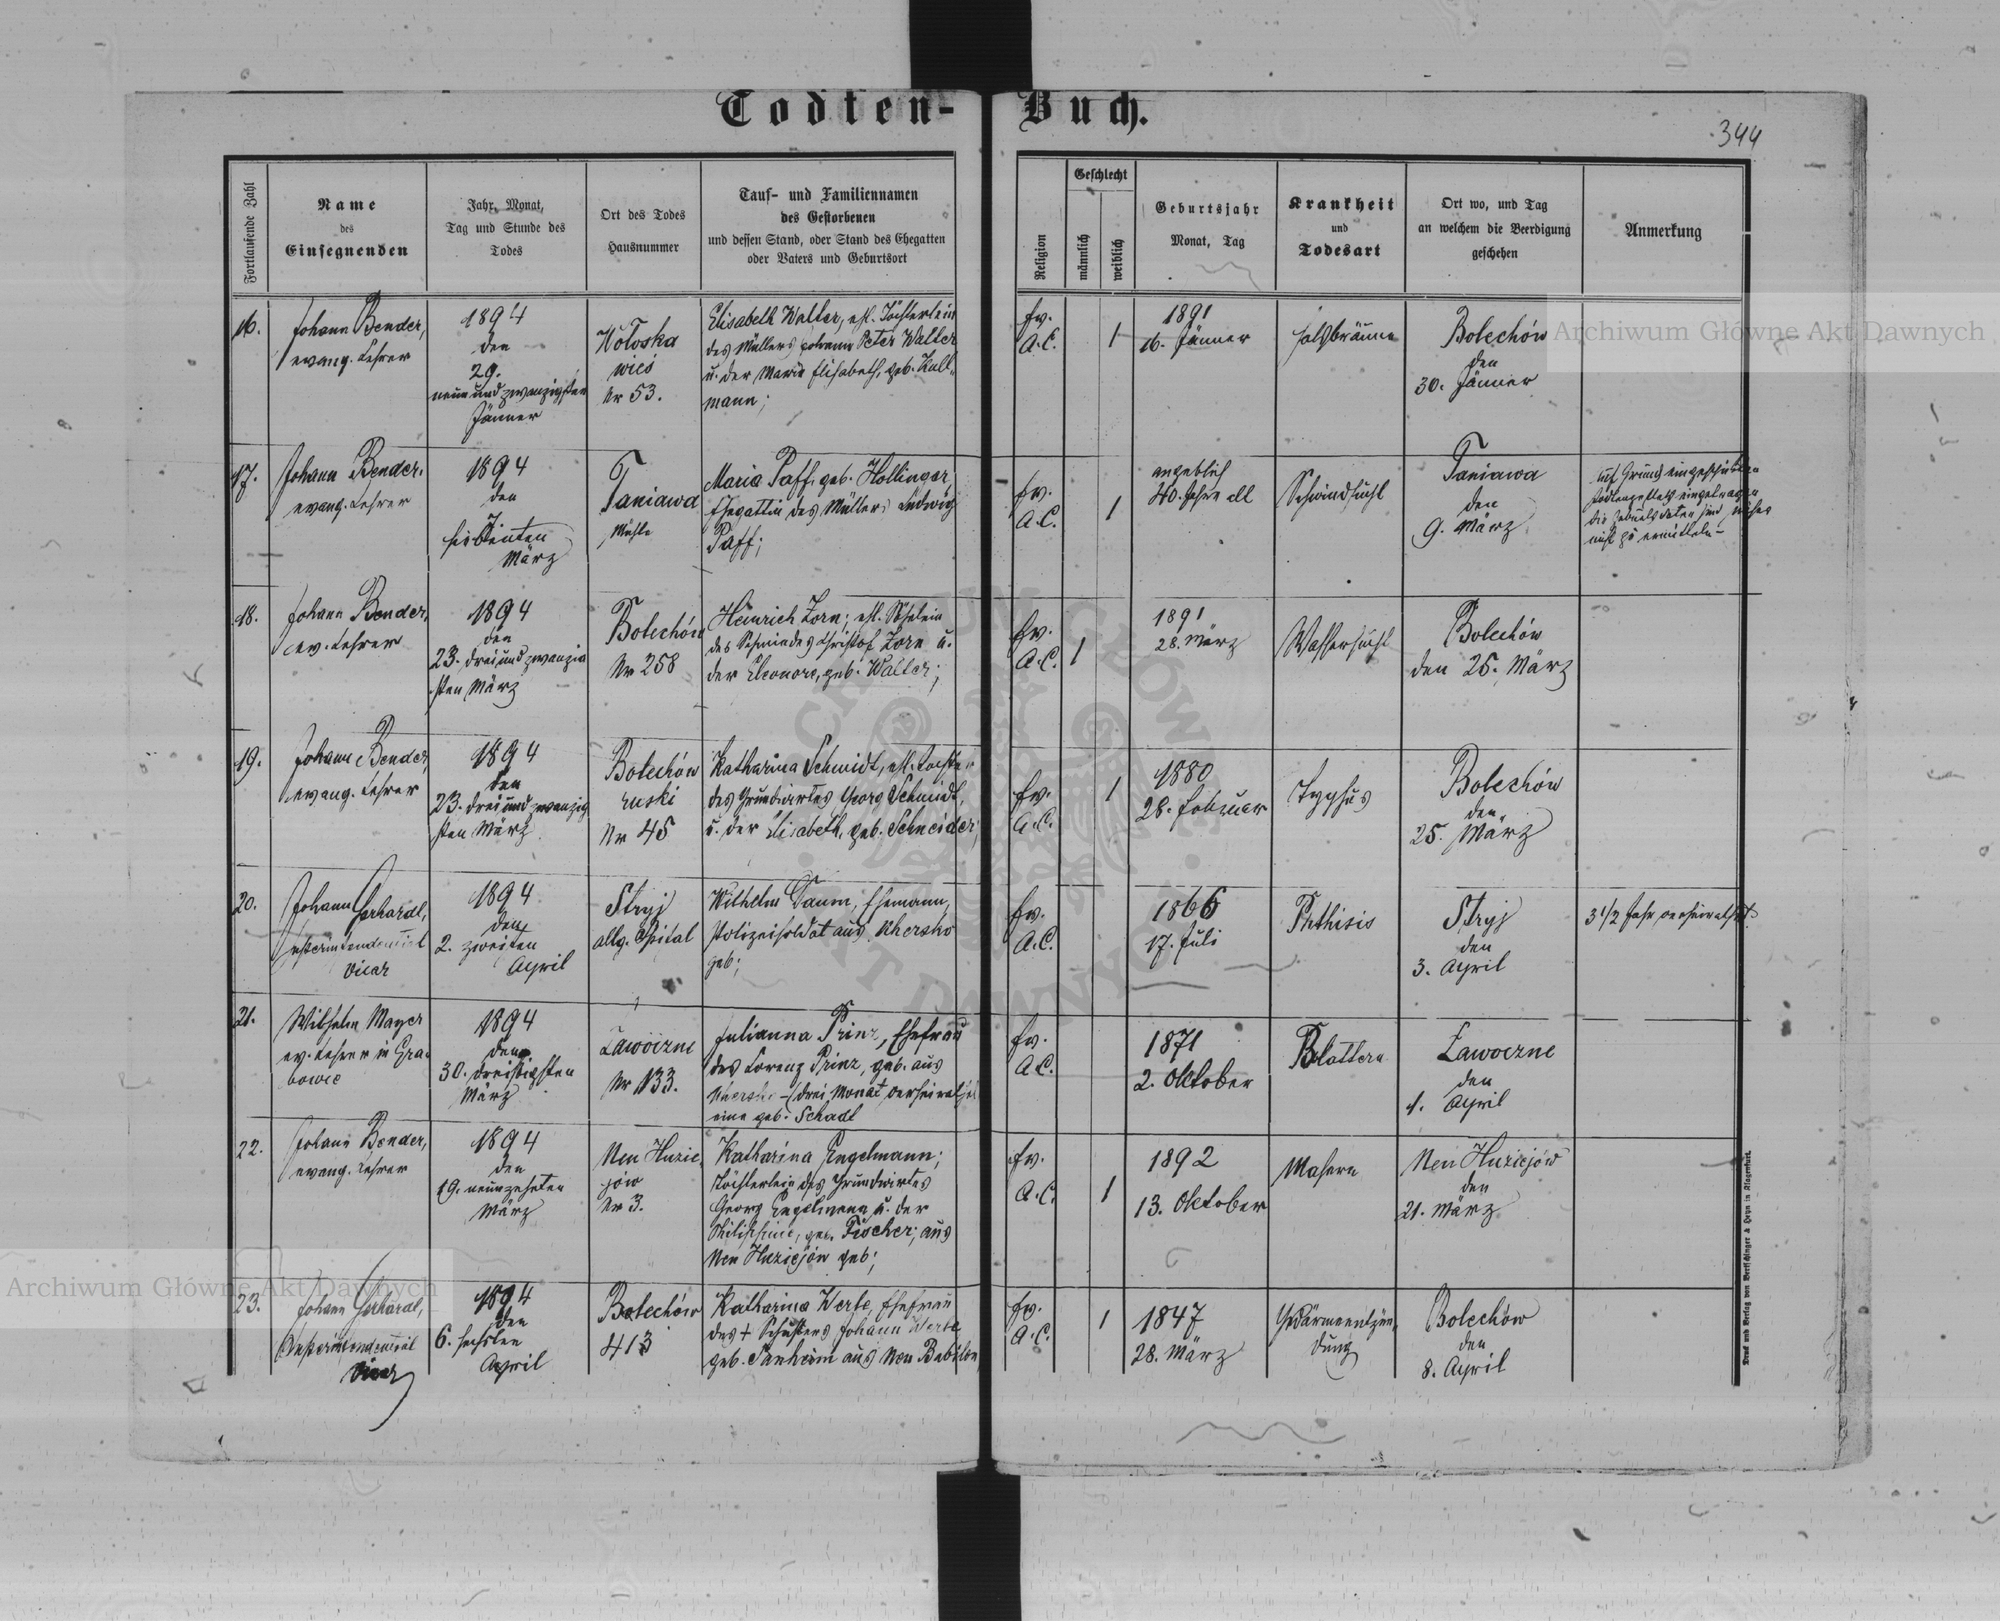 Todten-Buch.
344
Fortlaufende Zahl
Name
des
Einsegnenden
Jahr, Monat,
Tag und Stunde des
Todes
Ort des Todes
Hausnummer
Tauf- und Familiennamen
des Gestorbenen
und dessen Stand, oder Stand des Ehegatten
oder Vaters und Geburtsort
Religion
Geschlecht
männlich
weiblich
Geburtsjahr
Monat, Tag
Krankheit
und
Todesart
Ort wo, und Tag
an welchem die Beerdigung
geschehen
Anmerkung
16.
Johann Bender,
evang. Lehrer
1894
den
29.
neunundzwanzigsten
Jänner
Wołoska
wieś
Nr 53.
Elisabeth Walter, ehl. Töchterlein
des Müllers Johann Peter Walter
u. der Maria Elisabeth, geb. Kull-
mann;
Ev.
A.C.
1
1891
16. Jänner
Halsbräune
Bolechów
den
30. Jänner
17.
Johann Bender.
evang. Lehrer
1894
den
7.
siebenten
März
Taniawa
Mühle
Maria Paff, geb. Hollinger,
Ehegattin des Müllers Ludwig
Paff;
Ev.
A.C.
1
angeblich
40 Jahre alt
Schwindsucht
Taniawa
den
9. März
auf Grund eingeschickten
Todtenzettels eingetragen
die Geburtsdaten sind
nicht zu ermitteln-
18.
Johann Bender,
ev. Lehrer
1894
den
23. dreiundzwanzig
sten März
Bolechów
Nr 258
Heinrich Zorn; ehl. Söhnlein
des Schmiedes Christof Zorn u.
der Eleonore, geb. Walter;
Ev.
A.C.
1
1891
28. März
Wassersucht
Bolechów
den 25. März
19.
Johann Bender,
evang. Lehrer
1894
den
23. dreiundzwanzig
sten März
Bolechów
ruski
Nr 45
Katharina Schmidt, ehl. Tochter
des Grundwirtes Georg Schmidt,
u. der Elisabeth, geb. Schneider;
Ev.
A.C.
1
1880
28. Februar
Typhus
Bolechów
den
25. März
20.
Johann Gerhardt,
Superintendential
Vicar
1894
den
2. zweiten
April
Stryj
allg. Spital
Wilhelm Daum, Ehemann,
Polizeisoldat aus Ugersko
geb;
Ev.
A.C.
1866
17. Juli
Phthisis
Stryj
den
3. April
3 1/2 Jahr verheiratet
21.
Wilhelm Mayer
ev. Lehrer in Gra-
bowce
1894
den
30. dreißigsten
März
Ławoczne
Nr 133.
Julianna Prinz, Ehefrau
des Lorenz Prinz, geb. aus
Ugersko - (drei Monat verheiratet
eine geb. Schadt
Ev.
A.C.
1871
2. Oktober
Blattern
Ławoczne
den
1. April
22.
Johann Bender,
evang. Lehrer
1894
den
19. neunzehnten
März
Neu Huzie-
jów
Nr 3.
Katharina Engelmann;
Töchterlein des Grundwirtes
Georg Engelmann u. der
Philippine, geb. Fischer; aus
Neu Huziejów geb;
Ev.
A.C.
1
1892
13. Oktober
Masern
Neu Huziejów
den
21. März
23.
Johann Gerhardt,
Superintendential
Vicar
1894
den
6. sechsten
April
Bolechów
413
Katharina Werle, Ehefrau
des + Schusters Johann Werle
geb. Sanheim aus Neu Babilon
Ev.
A.C.
1
1847
28. März
Gedärmentzün-
dung
Bolechów
den
8. April
Druck und Verlag von Bertschinger & Heyn in Klagenfurt.
Archiwum Główne Akt Dawnych
Archiwum Główne Akt Dawnych